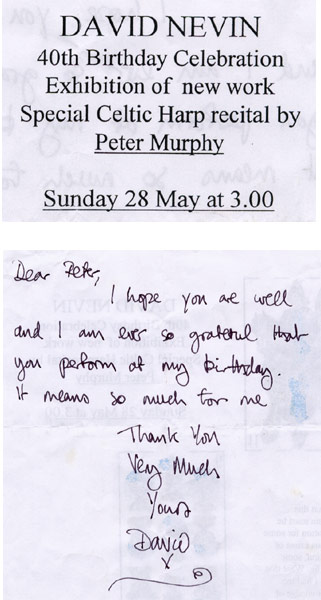 DAVID NEVIN
40th Birthday Celebration
Exhibition of new work
Special Celtic Harp recital by
Peter Murphy
Sunday 28 May at 3.00
Dear Peter,
I hope you are well
and I am ever so grateful that
you perform at my birthday.
it means so much for me
Thank You
Very Much
Yours
David
x